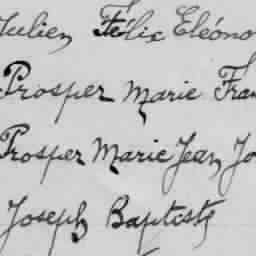 Julien Félix Eléono
Prosper Marie Fran
Prosper Marie Jean Jo
Joseph Baptiste